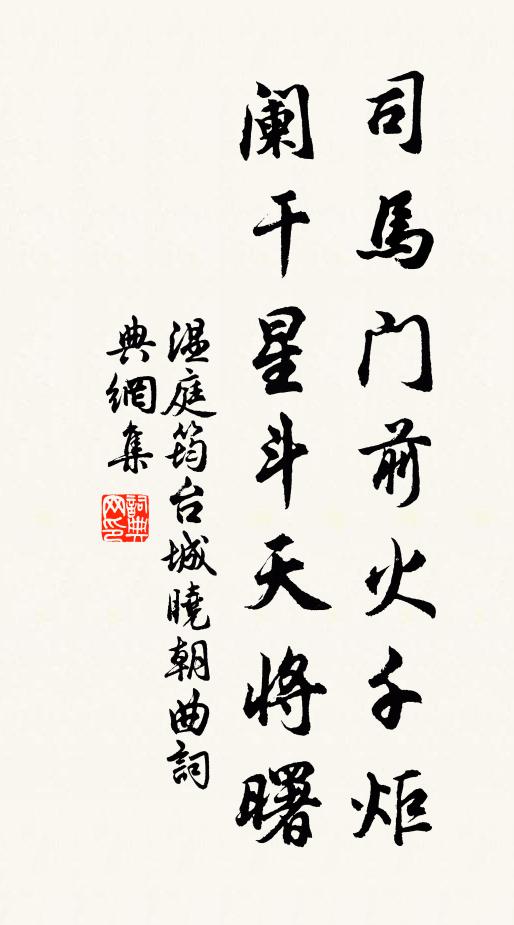 司馬门前火千炬
阑干星斗天将曙
温庭筠台城曉朝曲詞
典網集
詞典网印